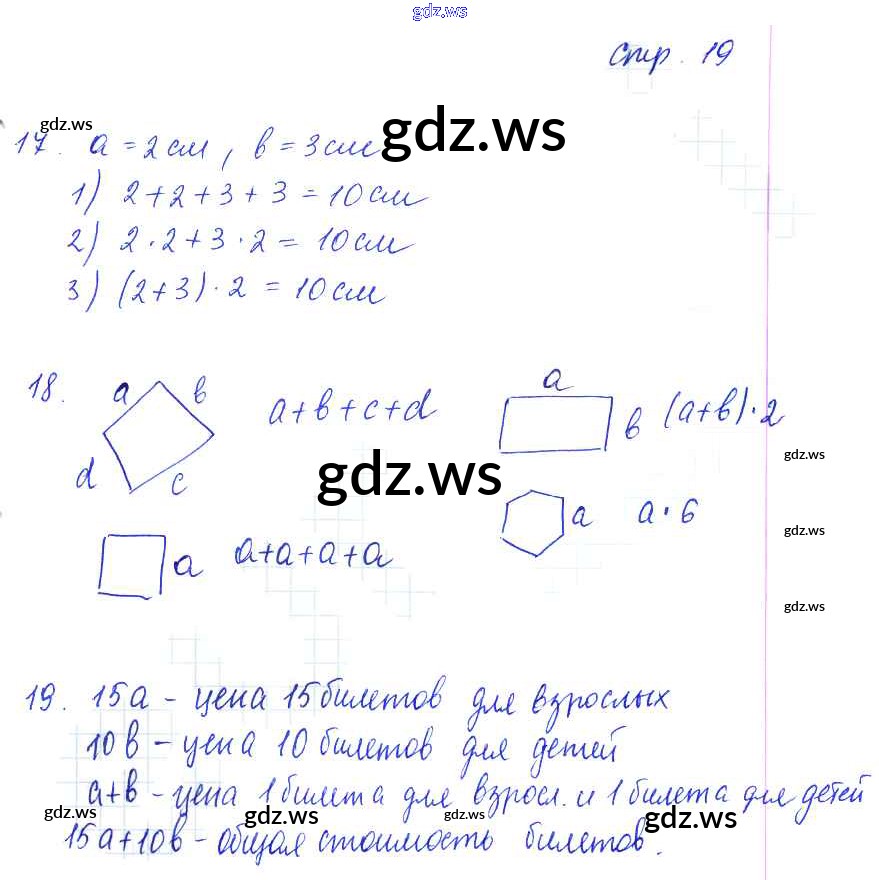 gdz.ws
стр. 19
gdz.ws
17. a = 2 см, в = 3 см gdz.ws
1) 2 + 2 + 3 + 3 = 10 см
2) 2 · 2 + 3 · 2 = 10 см
3) (2 + 3) · 2 = 10 см
18. a в a + в + c + d
d c
a в (a + в) · 2
gdz.ws
gdz.ws
a a + a + a + a
a a · 6
gdz.ws
gdz.ws
19. 15a - цена 15 билетов для взрослых
10в - цена 10 билетов для детей
a+в - цена 1 билета для взросл. и 1 билета для детей
gdz.ws gdz.ws gdz.ws gdz.ws
15a+10в - общая стоимость билетов.